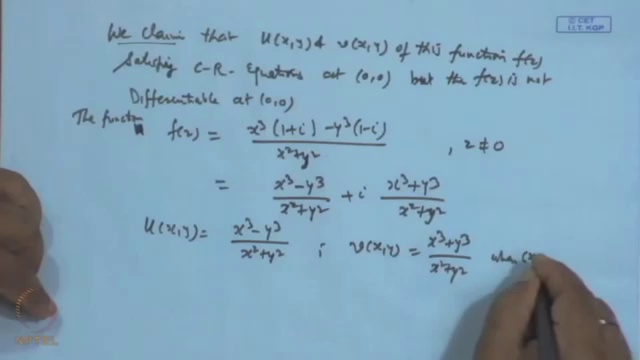 © CET
I.I.T. KGP
We claim that u(x,y) & v(x,y) of this function f(z)
Satisfying C-R. Equations at (0,0) but the f(z) is not
Differentiable at (0,0)
The function f(z) = x³(1+i) - y³(1-i) / x²+y² , z ≠ 0
= x³-y³ / x²+y² + i x³+y³ / x²+y²
u(x,y) = x³-y³ / x²+y² ; v(x,y) = x³+y³ / x²+y² when (x
NPTEL